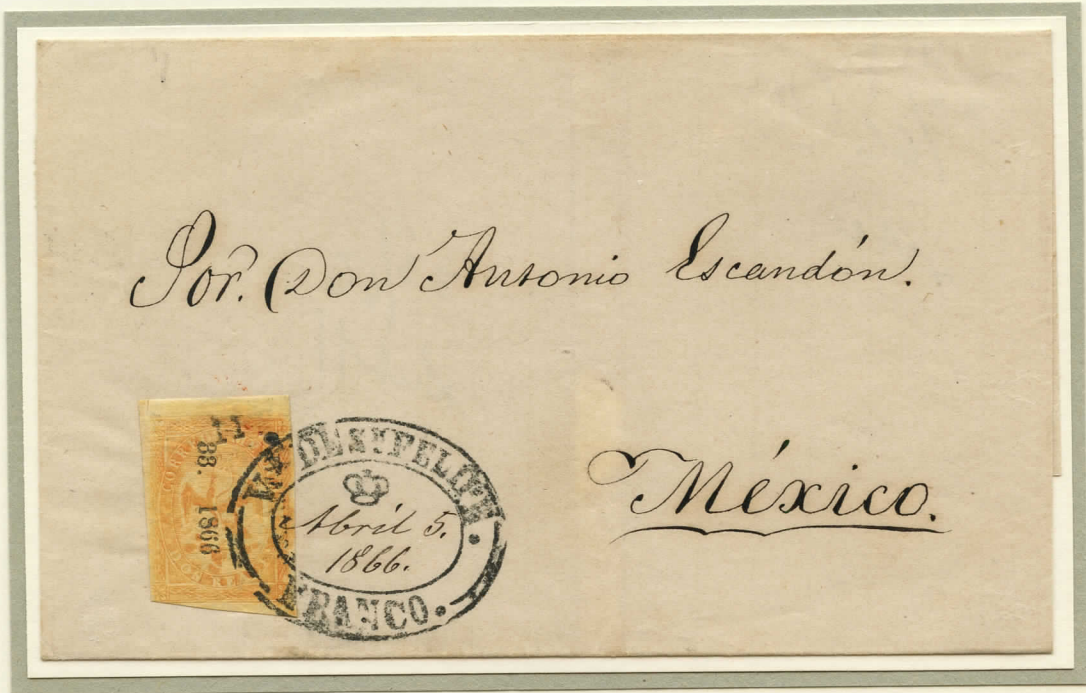 Sor. Don Antonio Escandón.
México.
88 1866
VA. DE Sn. FELIPE.
Abril 5.
1866.
FRANCO.